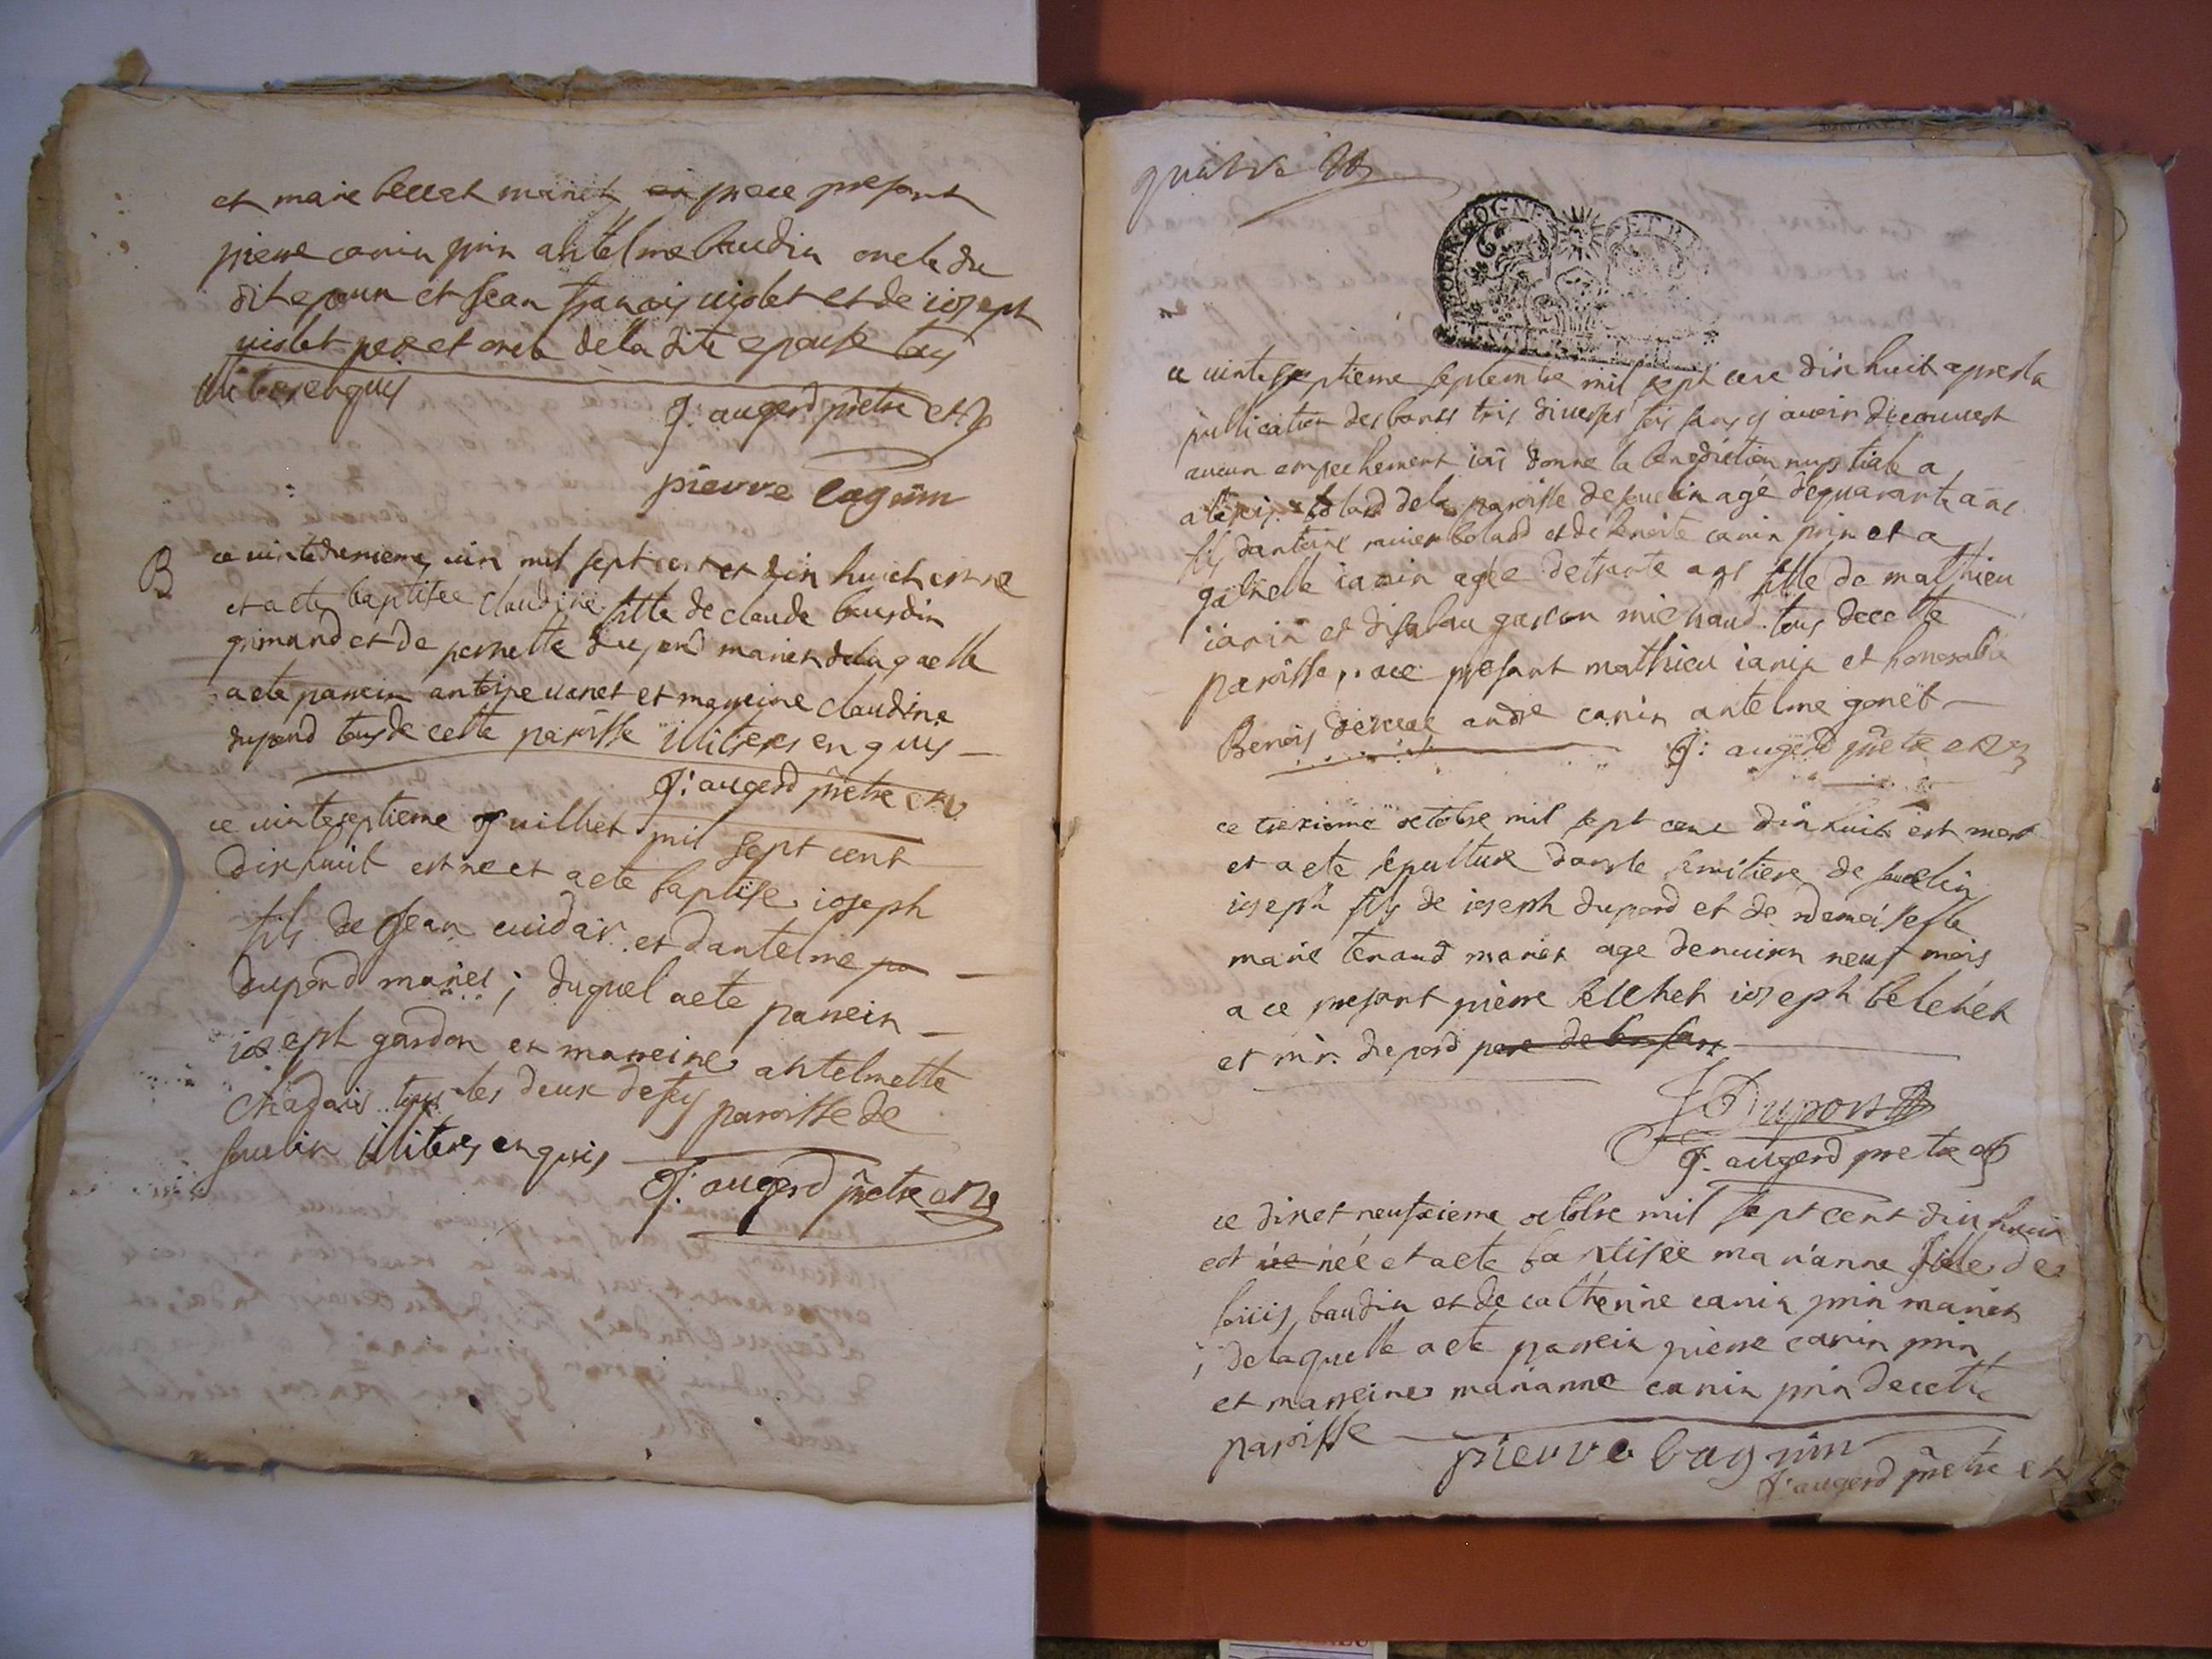 et marie bellet mariet presence present
pierre canin prin antelme baudin oncle du
dit epoux et Jean francois violet et de ioseph
violet pere et oncle de la dite epouse tous
illiteres enquis
J: augerd prêtre
pierre
B
ce vintedeuxieme iuin mil sept cent et dix huict est ne
et a ete baptisee claudine fille de claude bourdin
grimand et de pernette dupond mariet delaquelle
a ete parrein antoine vanet et marreine claudine
dupond tous de cette paroisse illiteres enquis
J: augerd prêtre
ce vinteseptieme Juillet mil sept cent
dixhuit est ne et a ete baptise ioseph
fils de Jean cuidar et dantelme
dupond mariés ; duquel a ete parrein
ioseph gardon et marreine antelmette
chadais tous les deux de
paroisse de
soucin illiteres enquis
J: augerd prêtre
quatre
BOURGOGNE ET BR
ce vinteseptieme septembre mil sept cent dix huit apres la
publication des bancs trois diverses fois sans y avoir decouvert
aucun empechement iai donne la benediction nuptiale a
bolard de la paroisse de soucin agé de quarante ans
fils dantoine bolard et de benoite canin prin et a
gabrielle ianin agée de trante ans fille de mathieu
ianin et disabau michaud tous de cette
paroisse, a ce present mathieu ianin et honorable
Benois andre canin antelme gonet
J: augerd prêtre
ce trezieme octobre mil sept cent dix huit est mort
et a ete sepulture dans le semitiere de soucelin
ioseph fils de ioseph dupond et de demoiselle
marie tenaud mariés age denviron neuf mois
a ce present pierre belchet ioseph belchet
et mr. dupond pere de lenfant
J Dupond
J. augerd pretre
ce dix et neufieme octobre mil sept cent dix huict
est née et a ete baptisée marianne fille de
louis baudin et de catherine canin prin mariés
; delaquelle a ete parrein pierre canin prin
et marreine marianne canin prin de cette
paroisse
pierre
J: augerd prêtre